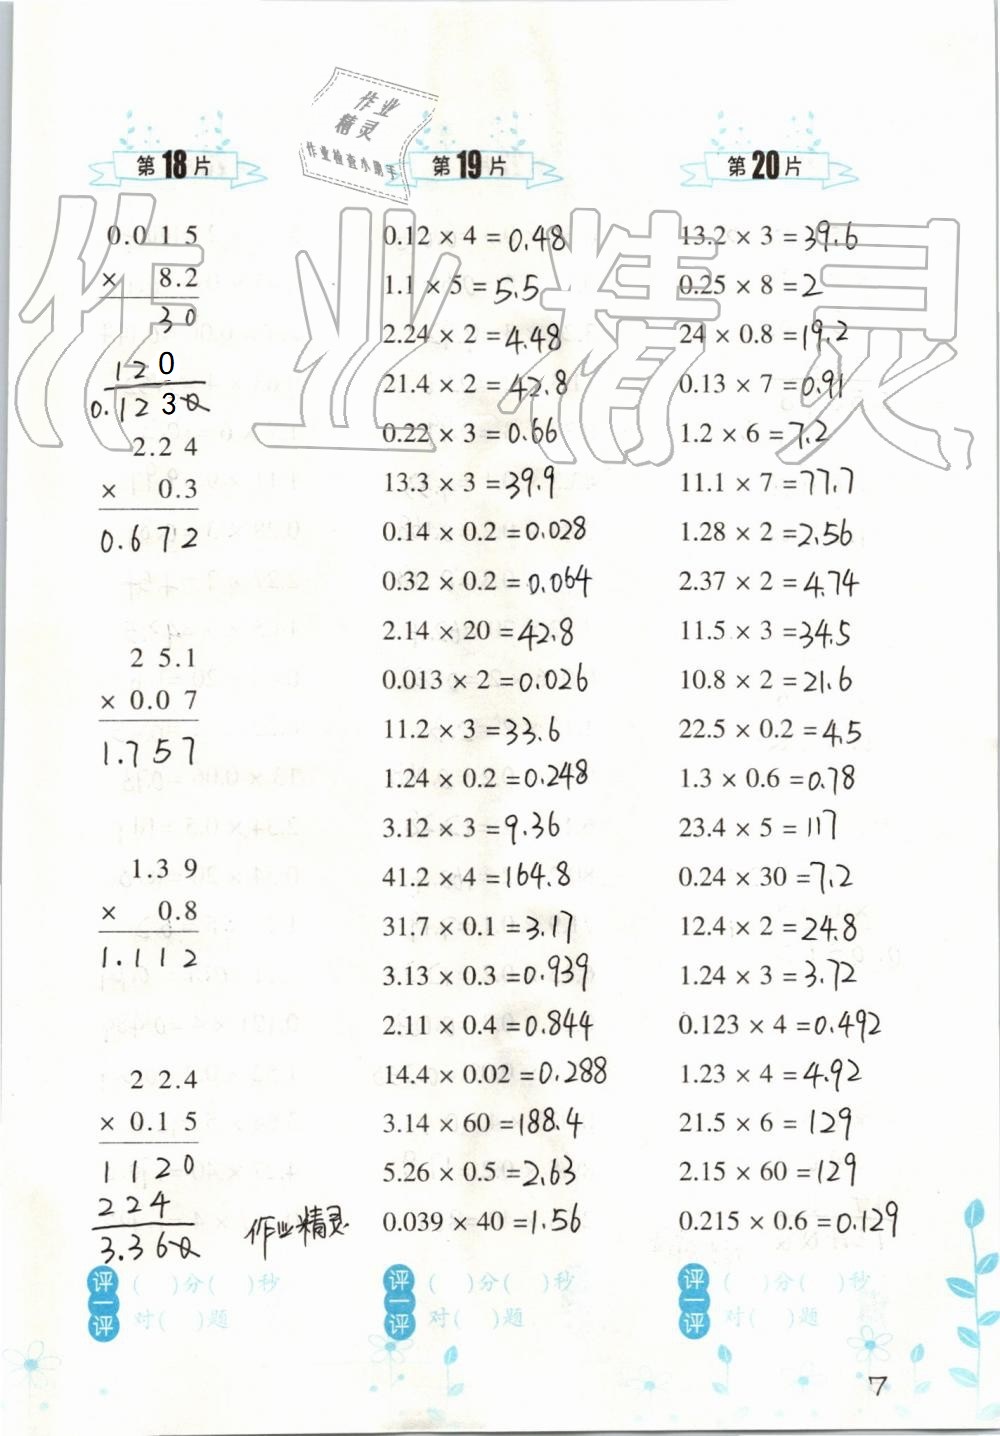 作业
精灵
作业检查小助手
第18片
0.015
× 8.2
30
120
0.1230
2.24
× 0.3
0.672
25.1
× 0.07
1.757
1.39
× 0.8
1.112
22.4
× 0.15
1120
224
3.360
作业精灵
评一评
( )分( )秒
对( )题
第19片
0.12 × 4 = 0.48
1.1 × 5 = 5.5
2.24 × 2 = 4.48
21.4 × 2 = 42.8
0.22 × 3 = 0.66
13.3 × 3 = 39.9
0.14 × 0.2 = 0.028
0.32 × 0.2 = 0.064
2.14 × 20 = 42.8
0.013 × 2 = 0.026
11.2 × 3 = 33.6
1.24 × 0.2 = 0.248
3.12 × 3 = 9.36
41.2 × 4 = 164.8
31.7 × 0.1 = 3.17
3.13 × 0.3 = 0.939
2.11 × 0.4 = 0.844
14.4 × 0.02 = 0.288
3.14 × 60 = 188.4
5.26 × 0.5 = 2.63
0.039 × 40 = 1.56
评一评
( )分( )秒
对( )题
第20片
13.2 × 3 = 39.6
0.25 × 8 = 2
24 × 0.8 = 19.2
0.13 × 7 = 0.91
1.2 × 6 = 7.2
11.1 × 7 = 77.7
1.28 × 2 = 2.56
2.37 × 2 = 4.74
11.5 × 3 = 34.5
10.8 × 2 = 21.6
22.5 × 0.2 = 4.5
1.3 × 0.6 = 0.78
23.4 × 5 = 117
0.24 × 30 = 7.2
12.4 × 2 = 24.8
1.24 × 3 = 3.72
0.123 × 4 = 0.492
1.23 × 4 = 4.92
21.5 × 6 = 129
2.15 × 60 = 129
0.215 × 0.6 = 0.129
评一评
( )分( )秒
对( )题
7
作业精灵